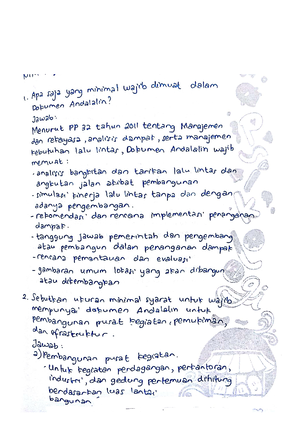 1. Apa saja yang minimal wajib dimuat dalam
Dokumen Andalalin?
Jawab:
Menurut PP 32 tahun 2011 tentang Manajemen
dan rekayasa, analisis dampak, serta manajemen
kebutuhan lalu lintas, Dokumen Andalalin wajib
memuat :
- analisis bangkitan dan tarikan lalu lintas dan
angkutan jalan akibat pembangunan
- simulasi kinerja lalu lintas tanpa dan dengan
adanya pengembangan.
- rekomendasi dan rencana implementasi penanganan
dampak.
- tanggung jawab pemerintah dan pengembang
atau pembangun dalam penanganan dampak
- rencana pemantauan dan evaluasi
- gambaran umum lokasi yang akan dibangun
atau dikembangkan
2. Sebutkan ukuran minimal syarat untuk wajib
mempunyai dokumen Andalalin untuk
pembangunan pusat kegiatan, pemukiman,
dan infrastruktur.
Jawab:
a) Pembangunan pusat kegiatan.
- Untuk kegiatan perdagangan, perkantoran,
industri, dan gedung pertemuan dihitung
berdasarkan luas lantai
bangunan